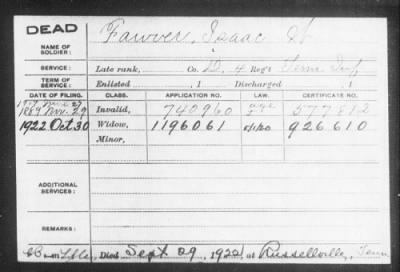 DEAD
NAME OF SOLDIER: Fawver, Isaac W
SERVICE: Late rank, Co. D, 4 Reg't Tenn Inf
TERM OF SERVICE: Enlisted , 1 Discharged , 1
DATE OF FILING. CLASS. APPLICATION NO. LAW. CERTIFICATE NO.
1889 Nov. 29 Invalid, 740960 age 577812
1922 Oct 30 Widow, 1196061 5/1/20 926610
Minor,
ADDITIONAL SERVICES:
REMARKS:
Died Sept 29, 1922 at Russellville, Tenn